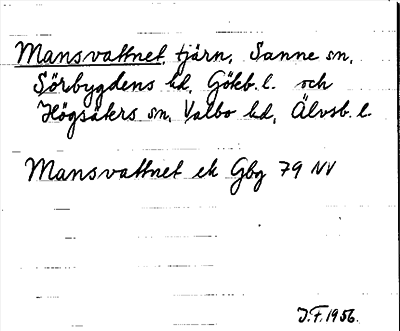 Mansvattnet, tjärn, Sanne sn,
Sörbygdens hd, Göteb. l. och
Högsäters sn, Valbo hd, Älvsb. l.
Mansvattnet ek Gbg 79 NV
J.F. 1956.